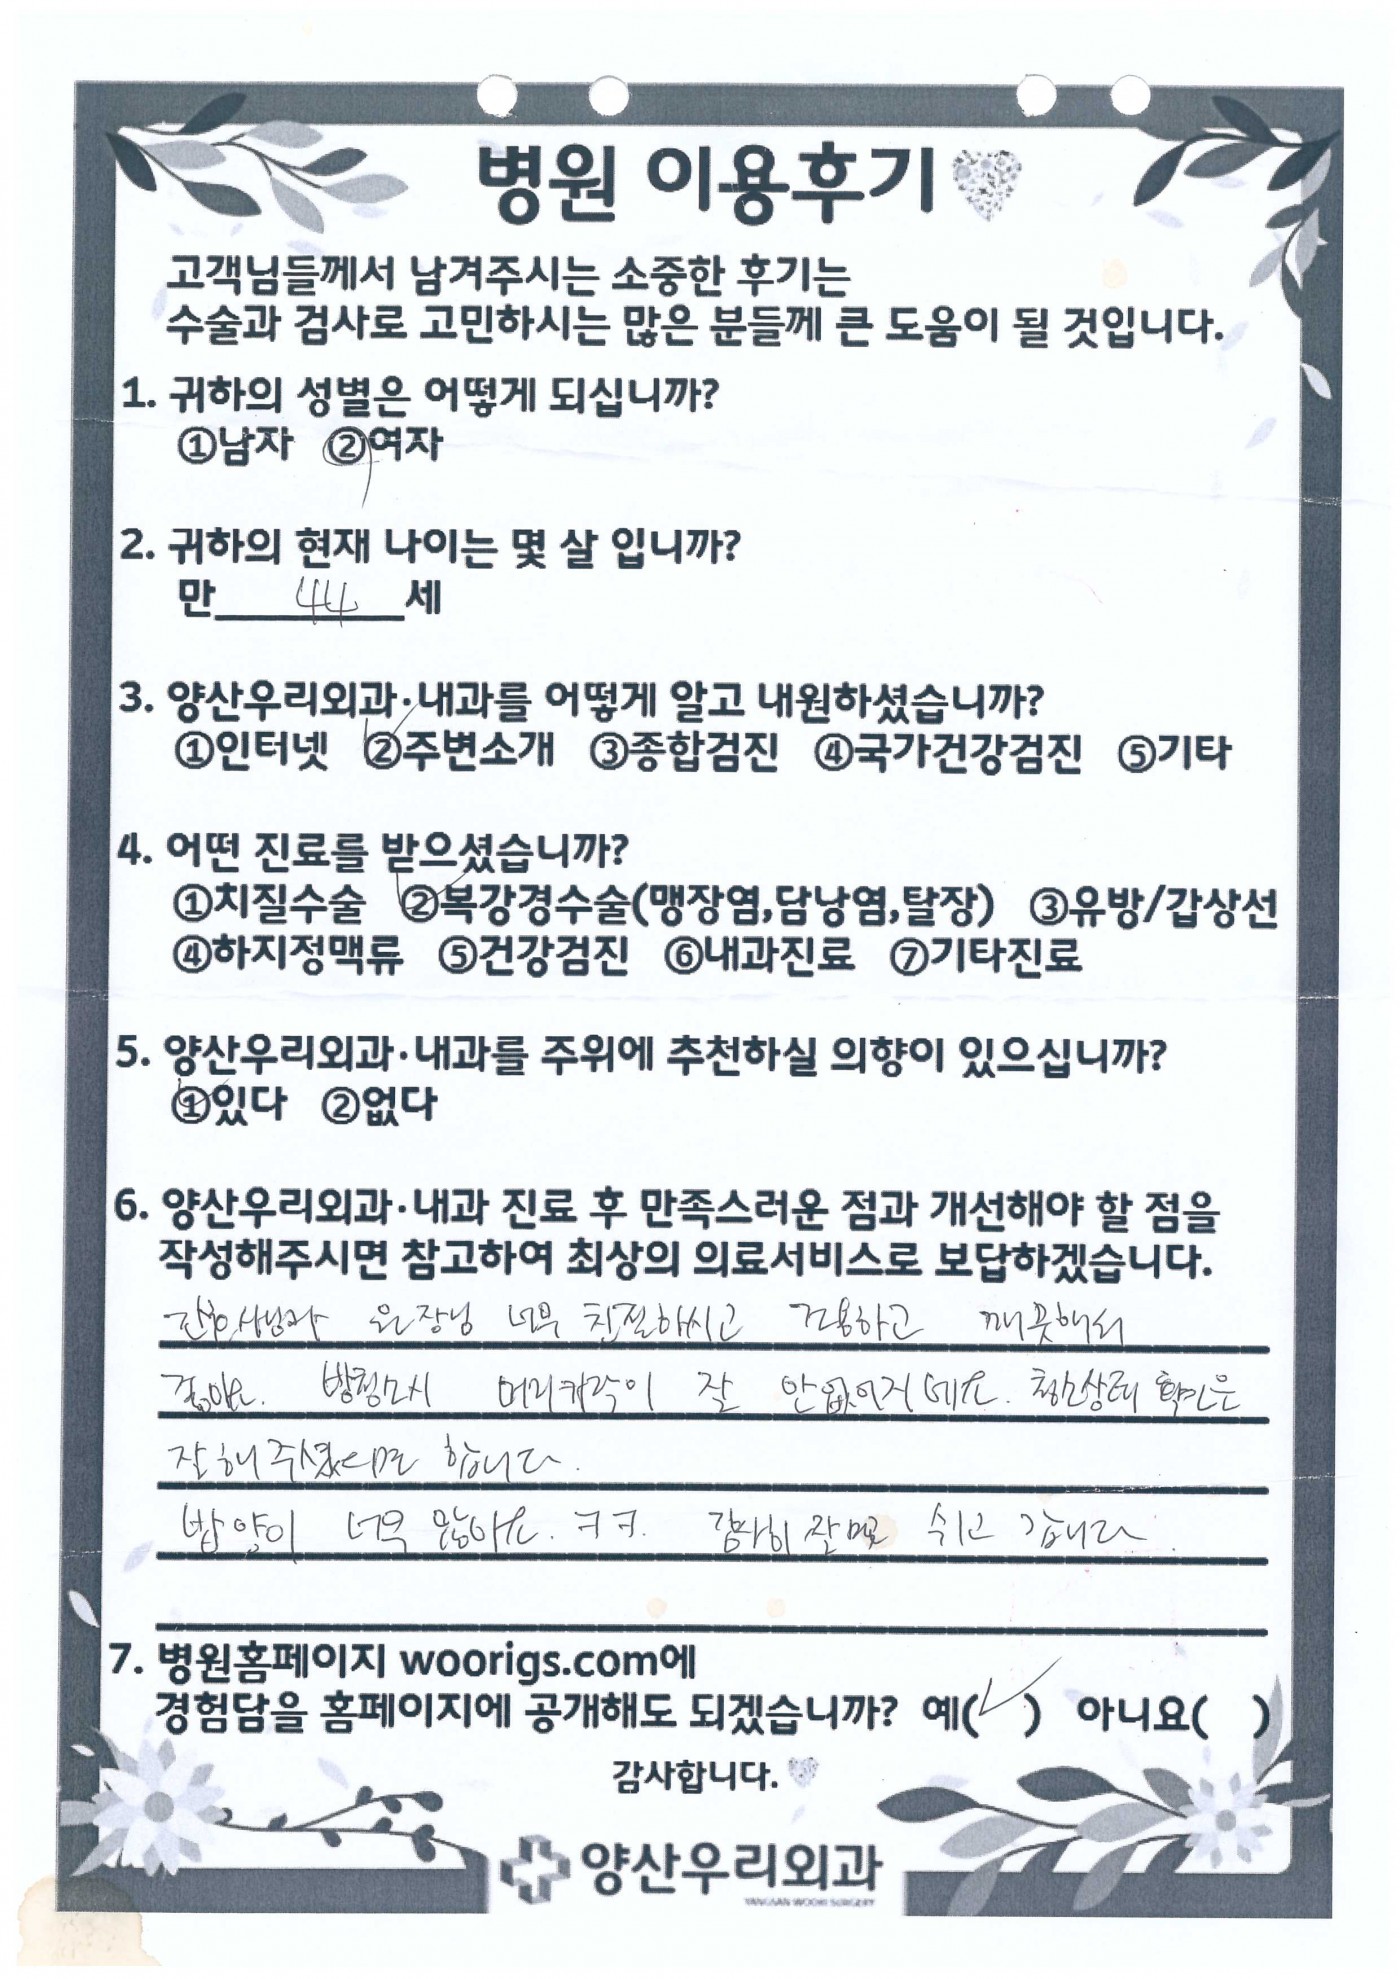 병원 이용후기
고객님들께서 남겨주시는 소중한 후기는
수술과 검사로 고민하시는 많은 분들께 큰 도움이 될 것입니다.
1. 귀하의 성별은 어떻게 되십니까?
①남자 ②여자
2. 귀하의 현재 나이는 몇 살 입니까?
만 44 세
3. 양산우리외과·내과를 어떻게 알고 내원하셨습니까?
①인터넷 ②주변소개 ③종합검진 ④국가건강검진 ⑤기타
4. 어떤 진료를 받으셨습니까?
①치질수술 ②복강경수술(맹장염,담낭염,탈장) ③유방/갑상선
④하지정맥류 ⑤건강검진 ⑥내과진료 ⑦기타진료
5. 양산우리외과·내과를 주위에 추천하실 의향이 있으십니까?
①있다 ②없다
6. 양산우리외과·내과 진료 후 만족스러운 점과 개선해야 할 점을
작성해주시면 참고하여 최상의 의료서비스로 보답하겠습니다.
원장님 너무 친절하시고 조용하고 깨끗해서
좋아요. 방청소시 머리카락이 잘 안없어지네요. 청소상태 확인은
잘 해주셨으면 합니다.
밥 양이 너무 많아요. ㅋㅋ. 감사히 잘 먹고 쉬고 갑니다.
7. 병원홈페이지 woorigs.com에
경험담을 홈페이지에 공개해도 되겠습니까? 예( ✓ ) 아니요( )
감사합니다.
양산우리외과
YANGSAN WOORI SURGERY